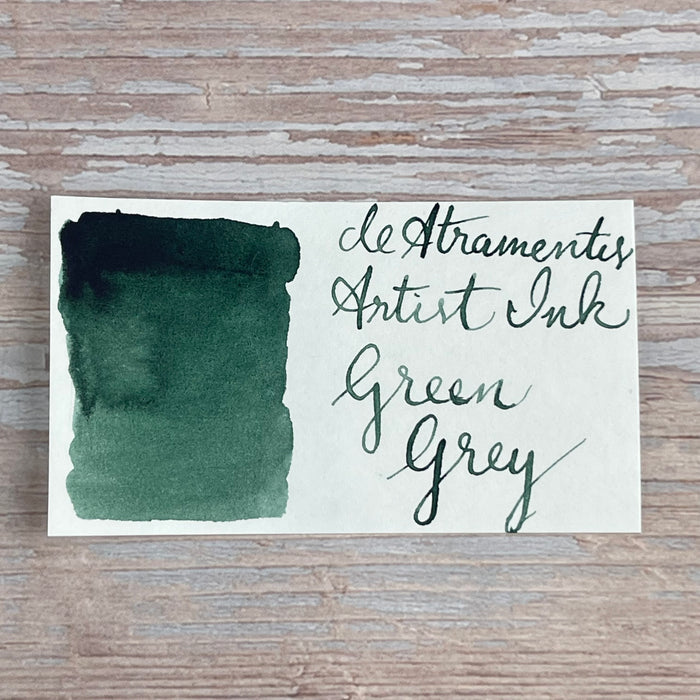 de Atramentis
Artist Ink
Green
Grey